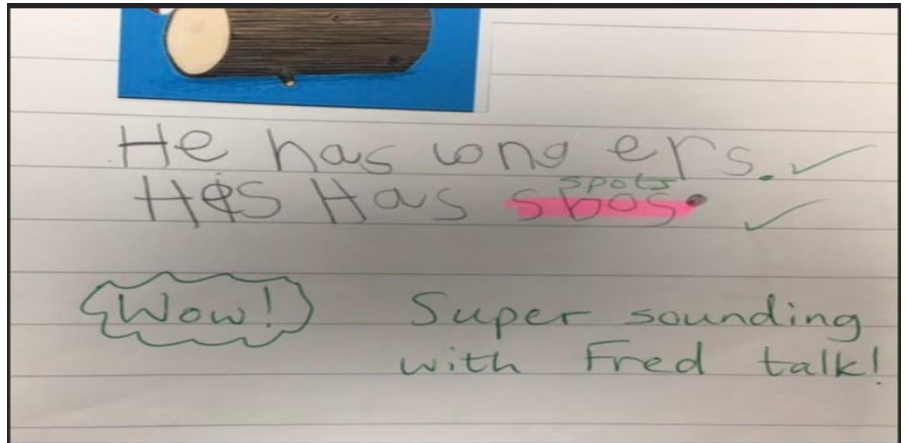 He has wong ers. ✓
His Has spots sbos. ✓
Wow! Super sounding
with Fred talk!